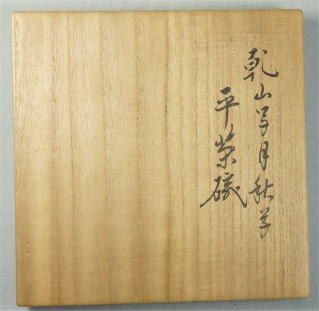 乾山写月秋草
平茶碗